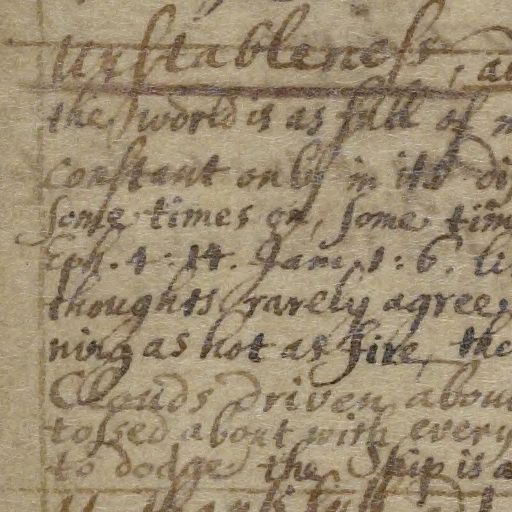 Unstableness, a
the world is as full of
constant only in its di
some times on, some tim
Eph. 4. 14. Jam. 1: 6. li
thoughts rarely agree
ning as hot as fire, the
Clouds driven abou
tossed about with every
to dodge the Ship is a